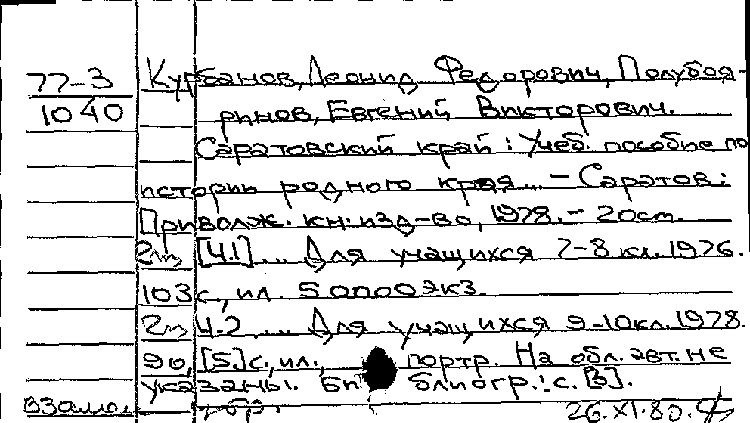 77-3
1040
Курбанов, Леонид Федорович, Полубоя-
ринов, Евгений Викторович.
Саратовский край: Учеб. пособие по
истории родного края... - Саратов:
Приволж. кн. изд-во, 1978. - 20 см.
[Ч.1] ... Для учащихся 7-8 кл. 1976.
103 с., ил. 50000 экз.
Ч.2 ... Для учащихся 9-10 кл. 1978.
90, [5] с., ил., портр. На обл. авт. не
указаны. Библиогр.: с. [3].
26.XI.80.